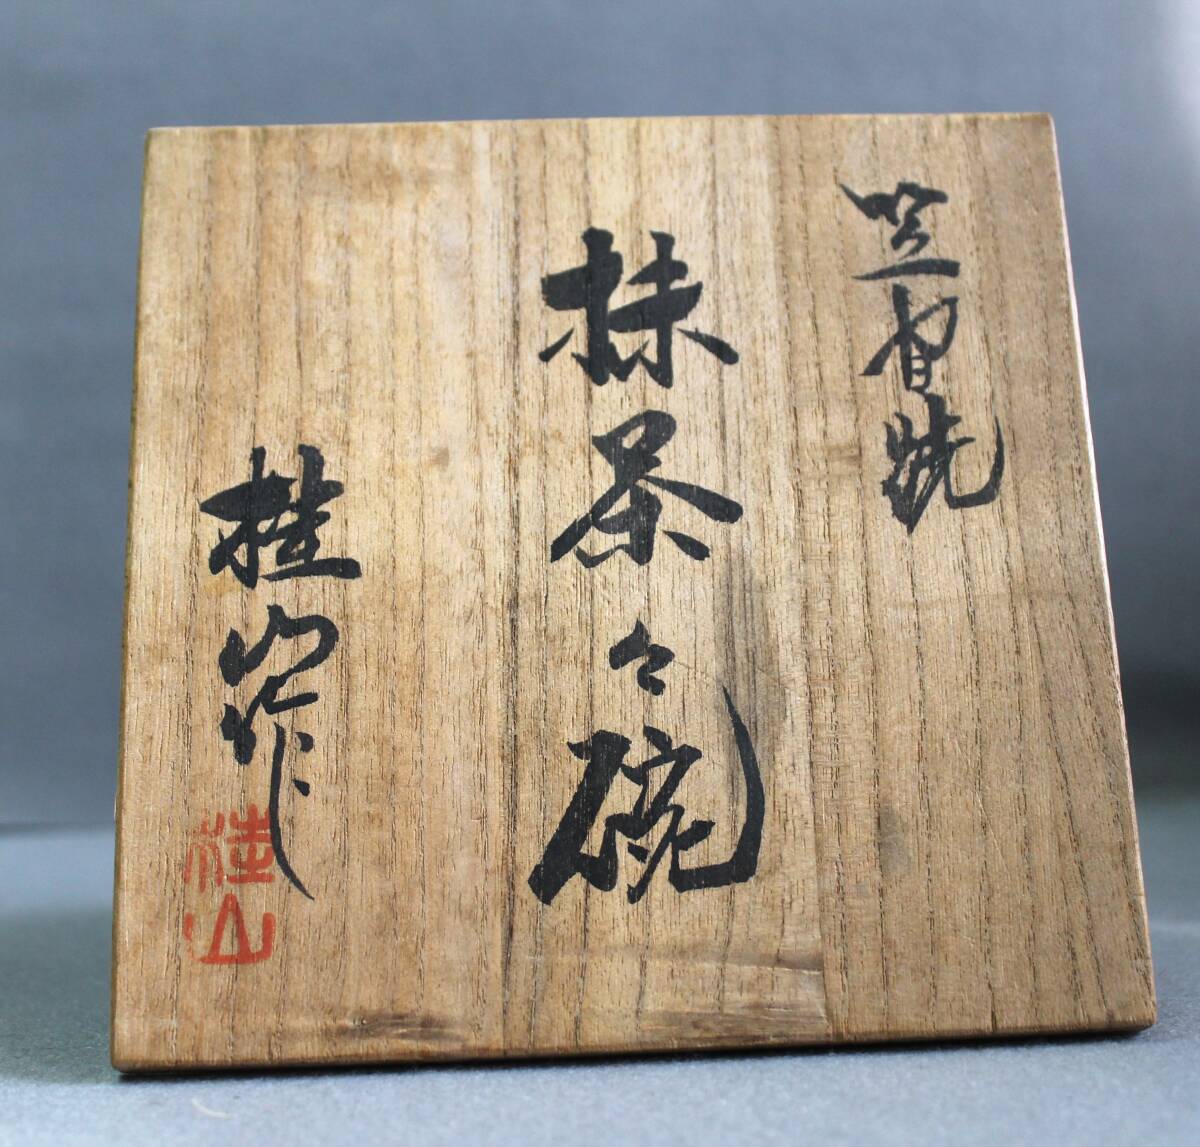 笠間焼
抹茶々碗
桂山作
桂山